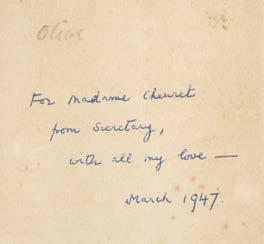 Olive
For Madame Cheuret
from Secretary,
with all my love —
March 1947.